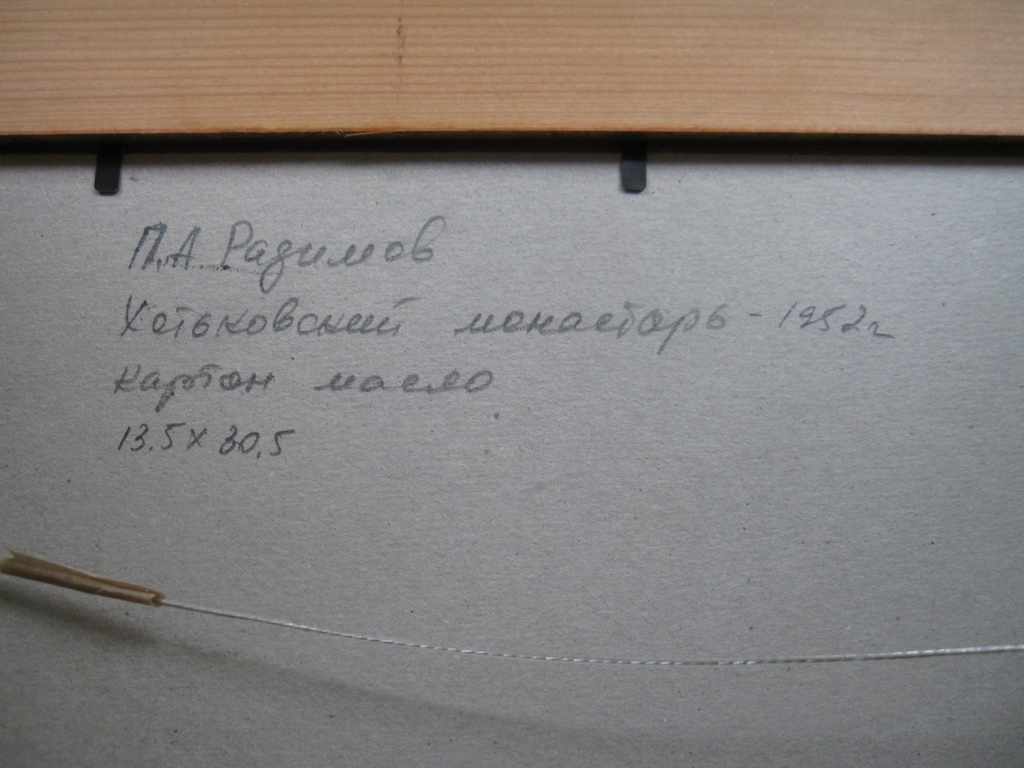 П.А. Радимов
Хотьковский монастырь - 1952г
картон масло
13.5 x 30,5